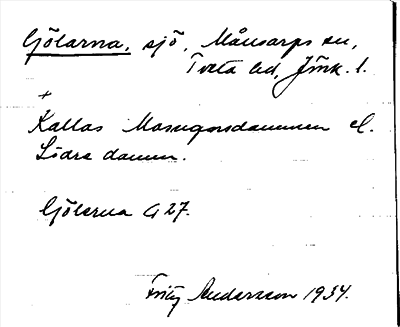 Gölarna, sjö, Månsarps sn,
Tveta hd, Jönk. l.
+
Kallas Masugnsdammen el.
Södra damm.
Gölarna G 27.
Fritz Andersson 1934.